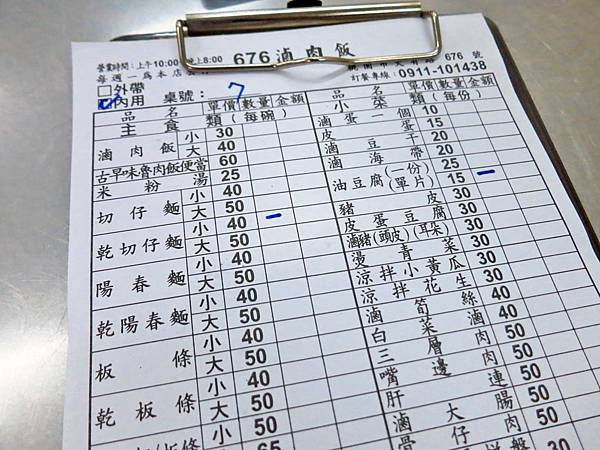 676滷肉飯
營業時間:上午10:00 晚上8:00
676 號
訂餐專線:0911-101438
外帶
內用 桌號: 7
品名 單價 數量 金額
主食類(每碗)
滷肉飯 小 30
大 40
古早味魯肉飯便當 60
米粉湯 25
切仔麵 小 40
大 50 –
乾切仔麵 小 40
大 50
陽春麵 小 40
大 50
乾陽春麵 小 40
大 50
板條 小 40
大 50
乾板條 小 40
大 50
小 50
65
品名 單價 數量 金額
小菜類(每份)
滷蛋一個 10
皮蛋 15
滷豆干 20
滷海帶 20
油豆腐 (一份) 25
(單片) 15 –
豬皮 30
皮蛋豆腐 30
滷豬(頭皮)(耳朵) 30
燙青菜 30
涼拌小黃瓜 30
涼拌花生 30
滷筍絲 40
白菜滷 40
三層肉 50
嘴邊肉 50
肝連 50
滷大腸 50
骨仔肉 50